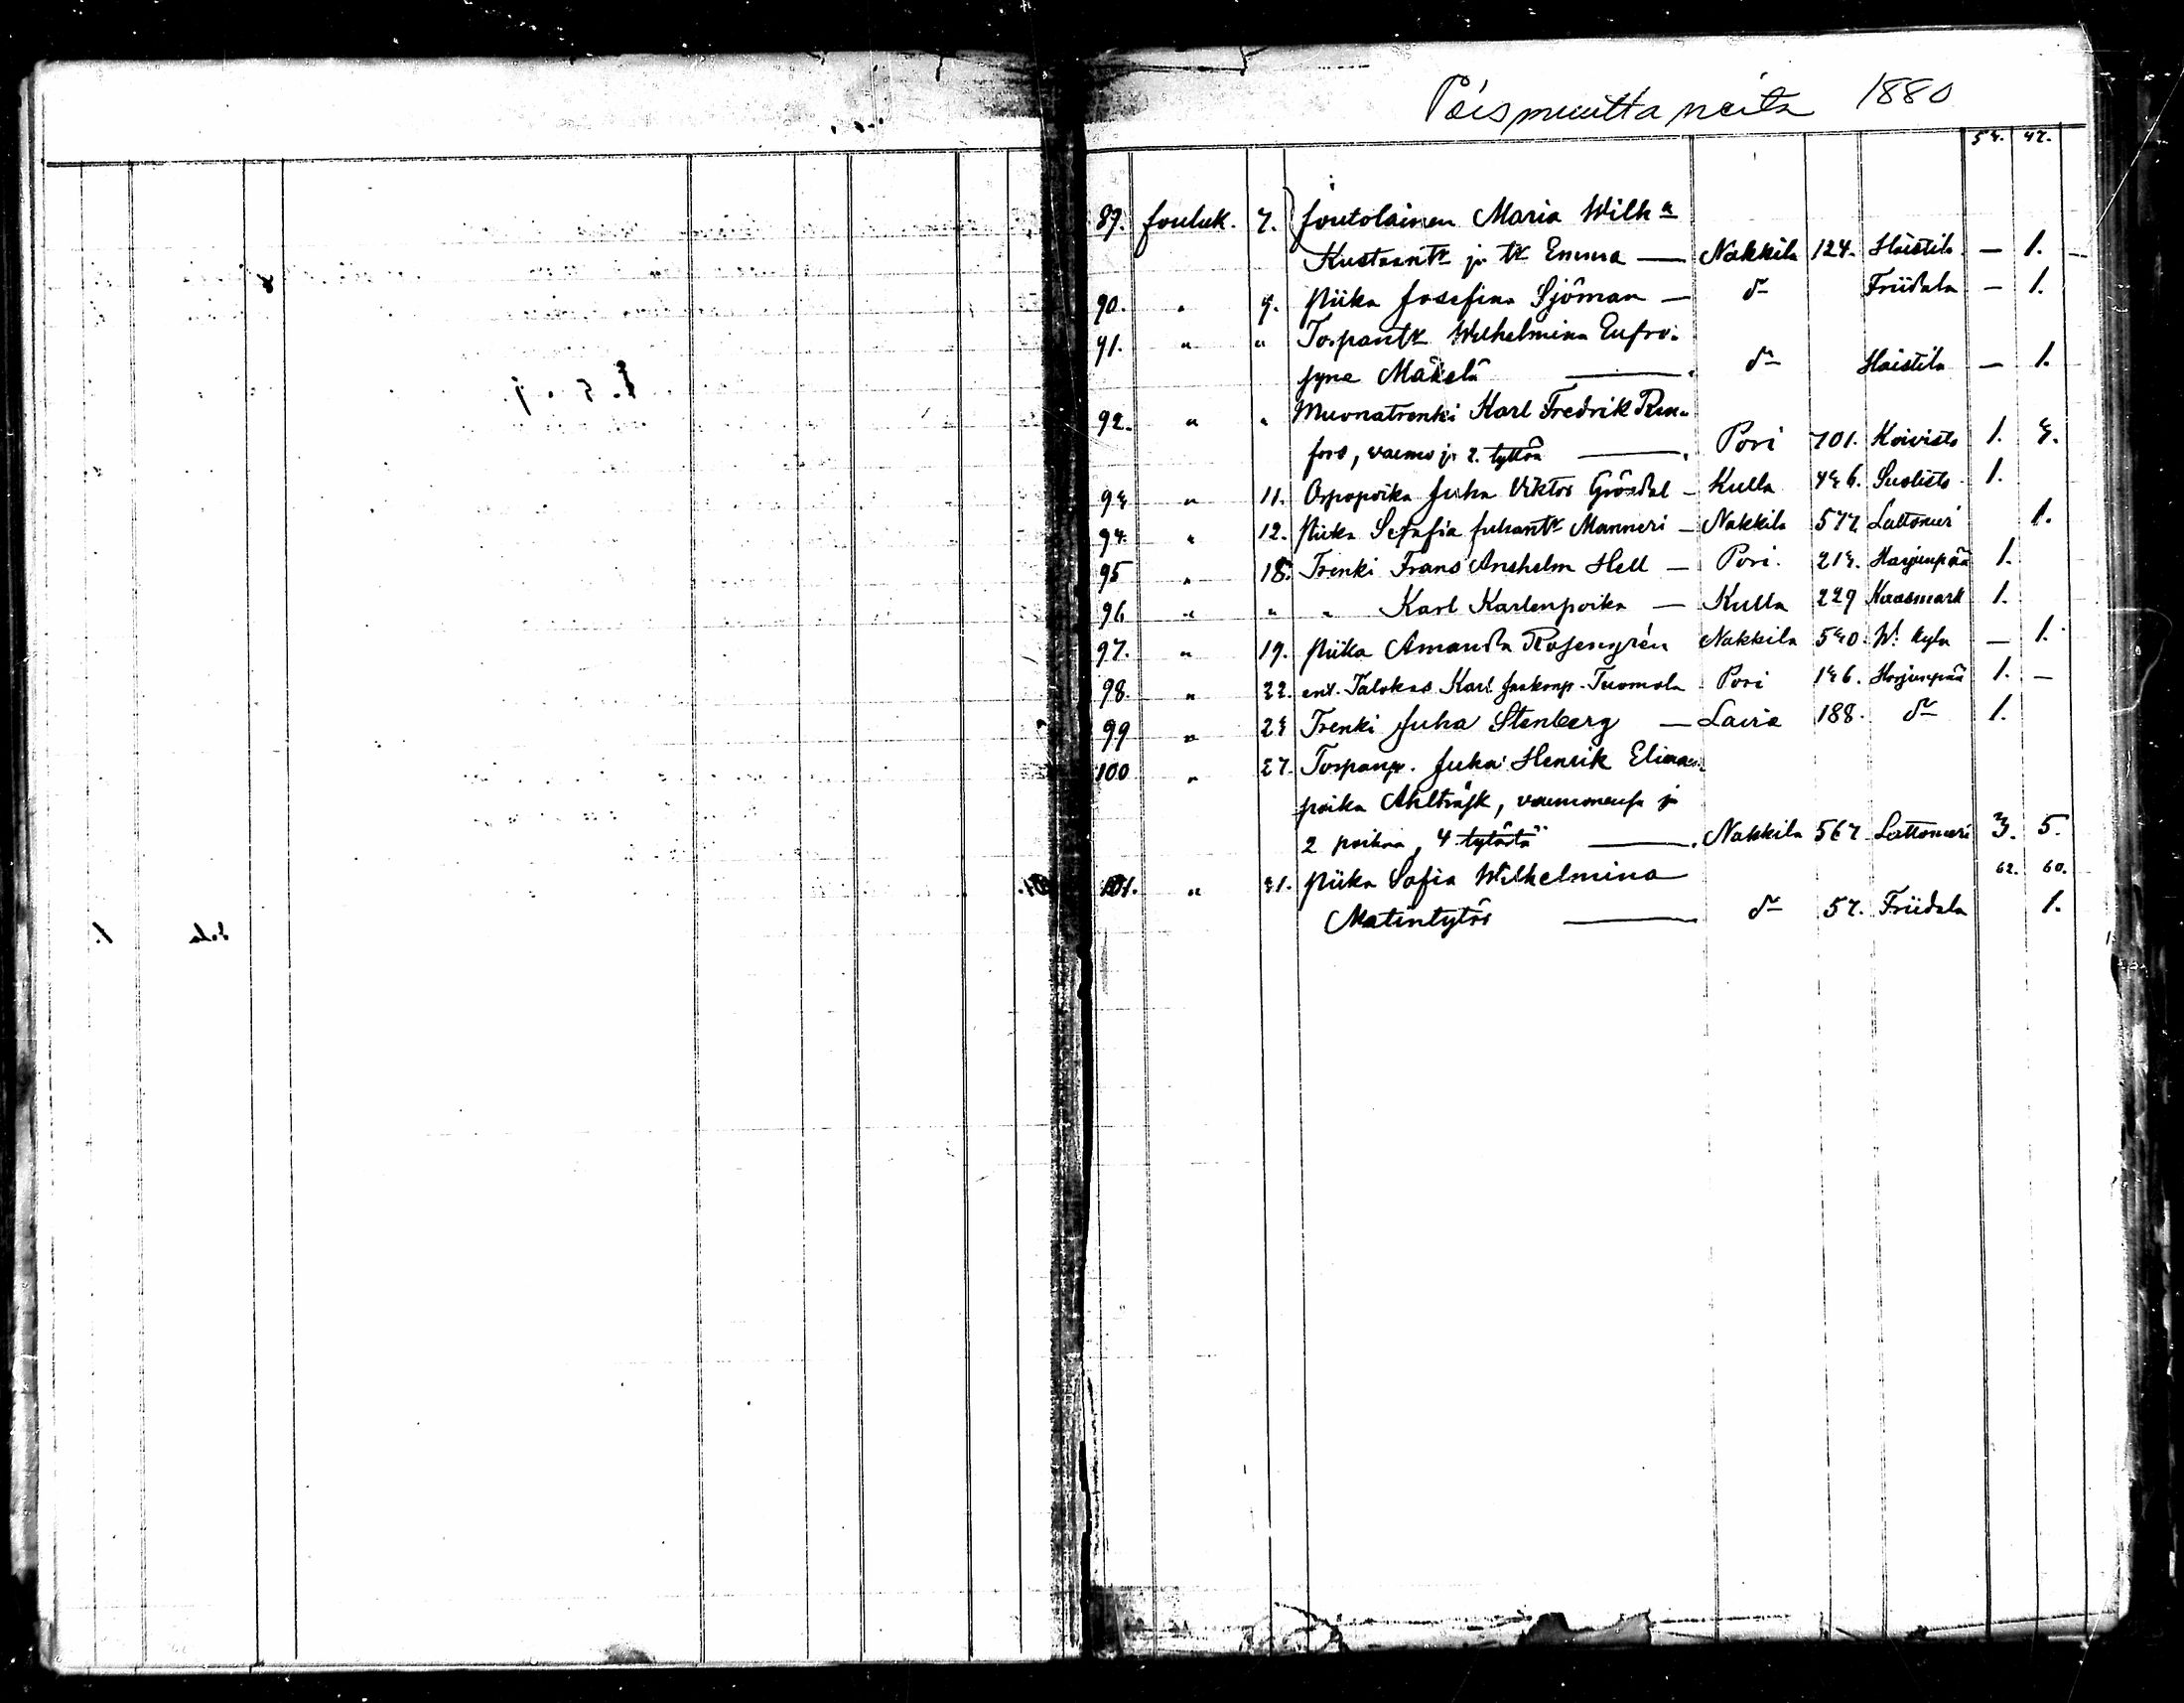 Poismuuttaneita 1880
54. 47.
89. Jouluk. 7. Joutolainen Maria Wilh a
Kustaantr ja tr Emma — Nakkila 124. Haistila — 1.
90. " 9. Piika Josefina Sjöman — dr Friidala — 1.
91. " " Torpantr Wilhelmina Eufro-
syne Mäkelä — dr Haistila — 1.
92. " " Muonatrenki Karl Fredrik Ren-
fors, vaimo ja 2. tyttöä — Pori 701. Koivisto 1. 3.
93 " 11. Ospopoika Juha Viktor Gröndal — Kulla 436. Suolisto 1.
94. " 12. Piika Serafia Juhantr Manneri — Nakkila 577 Lattomeri 1.
95 " 18. Trenki Frans Anshelm Hell — Pori. 213. Harjunpää 1.
96 " " " Karl Karlenpoika — Kulla 229 Kaasmark 1.
97. " 19. Piika Amanda Rosengrén Nakkila 530. W. kylä — 1.
98. " 22. ent. Talokas Karl Jaakonp. Tuomola Pori 136. Harjunpää 1. —
99 " 23 Trenki Juha Stenberg — Lavia 188. dr 1.
100 " 27. Torpanp. Juha Henrik Eliaan-
poika Ahlträsk, vaimonensa ja
2 poikaa, 4 tytärtä — Nakkila 567. Lattomeri 3. 5.
62. 60.
101. " 31. Piika Sofia Wilhelmina
Matintytär — dr 57. Friidala 1.